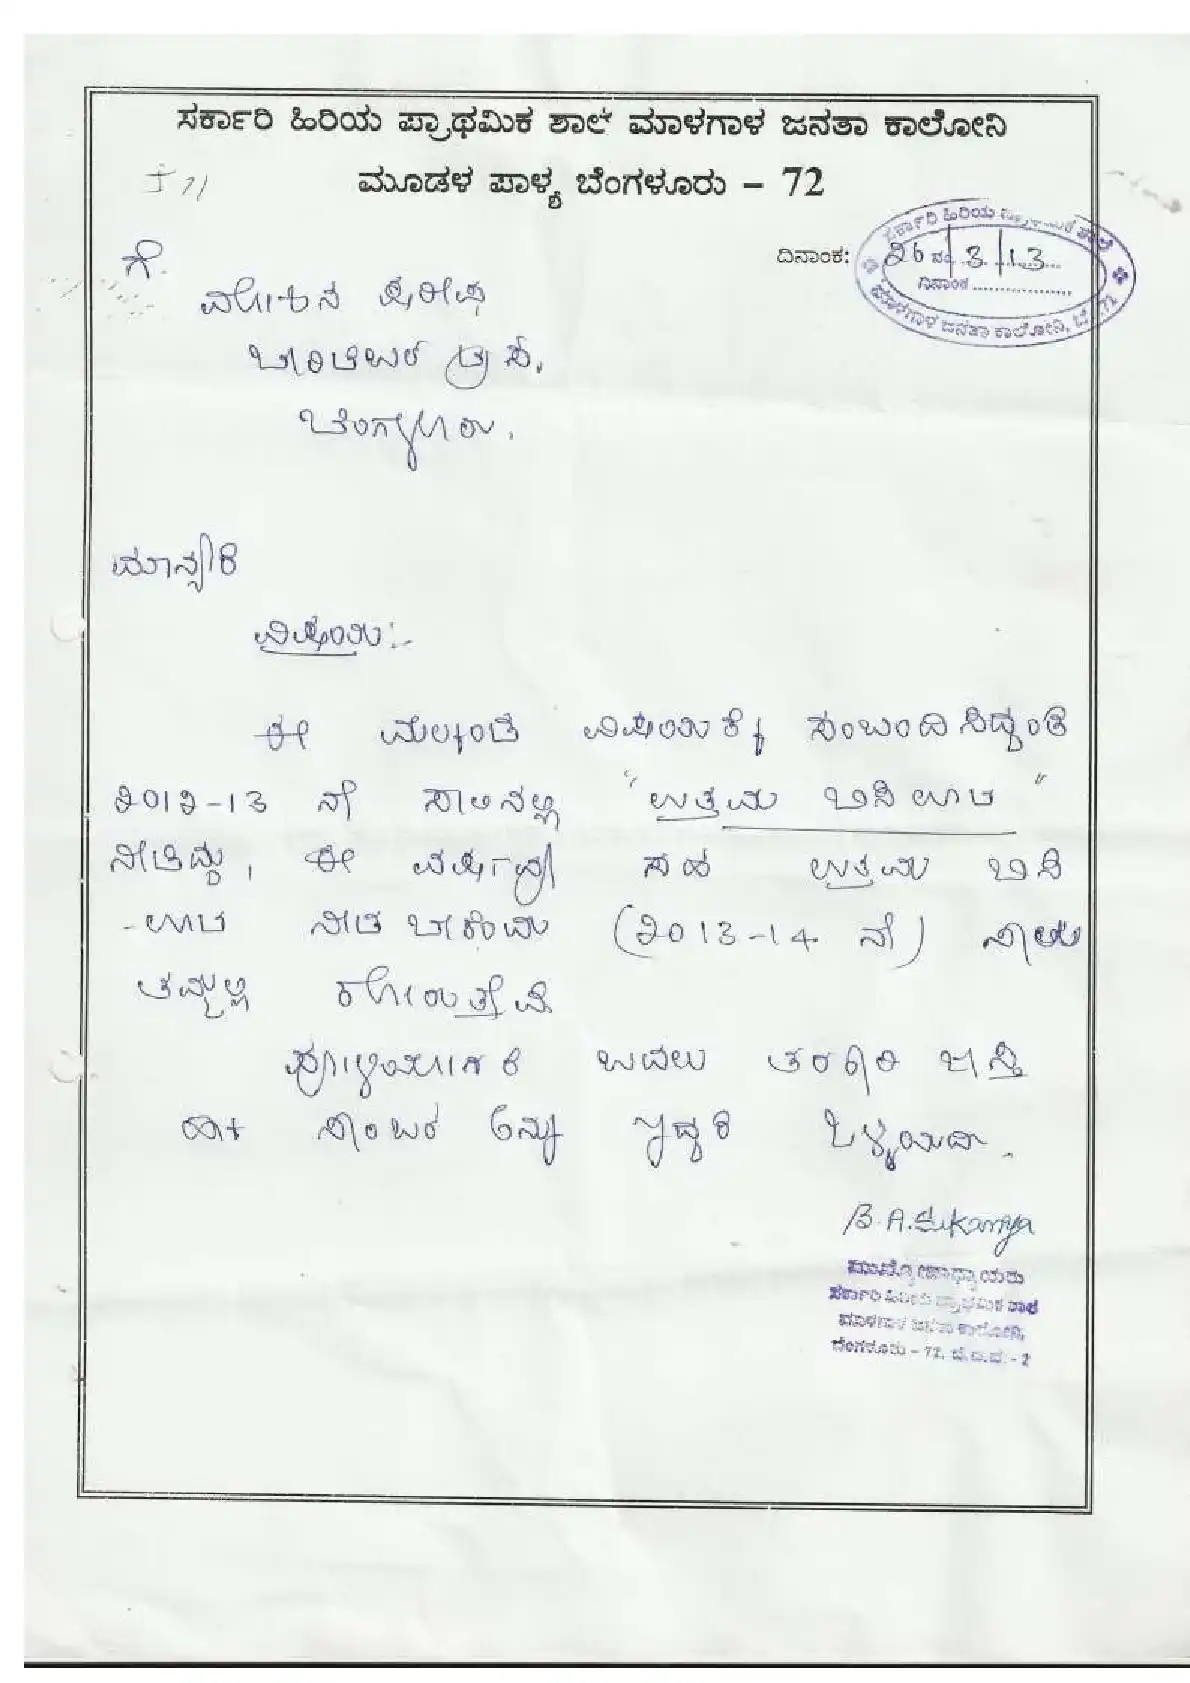 ಸರ್ಕಾರಿ ಹಿರಿಯ ಪ್ರಾಥಮಿಕ ಶಾಲೆ ಮಾಳಗಾಳ ಜನತಾ ಕಾಲೋನಿ
ಮೂಡಳ ಪಾಳ್ಯ ಬೆಂಗಳೂರು – 72
ದಿನಾಂಕ: 26/3/13
ಸರ್ಕಾರಿ ಹಿರಿಯ ಪ್ರಾಥಮಿಕ ಶಾಲೆ
ದಿನಾಂಕ
ಮಾಳಗಾಳ ಜನತಾ ಕಾಲೋನಿ, ಬೆಂ-72
ಗೆ
ಬೆಂಗಳೂರು.
ಮಾನ್ಯರೆ
ವಿಷಯ:-
ಈ ಮೇಲ್ಕಂಡ ವಿಷಯಕ್ಕೆ ಸಂಬಂದಿಸಿದ್ದಂತೆ
2012-13 ನೇ ಸಾಲಿನಲ್ಲಿ "ಉತ್ತಮ ಬಿಸಿ ಊಟ"
ನೀಡಿದ್ದು, ಈ ವರ್ಷವೂ ಸಹ ಉತ್ತಮ ಬಿಸಿ
-ಊಟ ನೀಡ ಬೇಕೆಂದು (2013-14 ನೇ) ನಾವು
ತಮ್ಮಲ್ಲಿ ಕೋರುತ್ತೇವೆ
ಬದಲು ತರಕಾರಿ ಜಾಸ್ತಿ
ಹಾಕಿ ಸಾಂಬಾರ್ ಒಳ್ಳೆಯದು.
B.A.Sukanya
ಮುಖ್ಯೋಪಾಧ್ಯಾಯರು
ಸರ್ಕಾರಿ ಹಿರಿಯ ಪ್ರಾಥಮಿಕ ಶಾಲೆ
ಮಾಳಗಾಳ ಜನತಾ ಕಾಲೋನಿ,
ಬೆಂಗಳೂರು – 72. ಬೆ.ದ.ವ. - 2